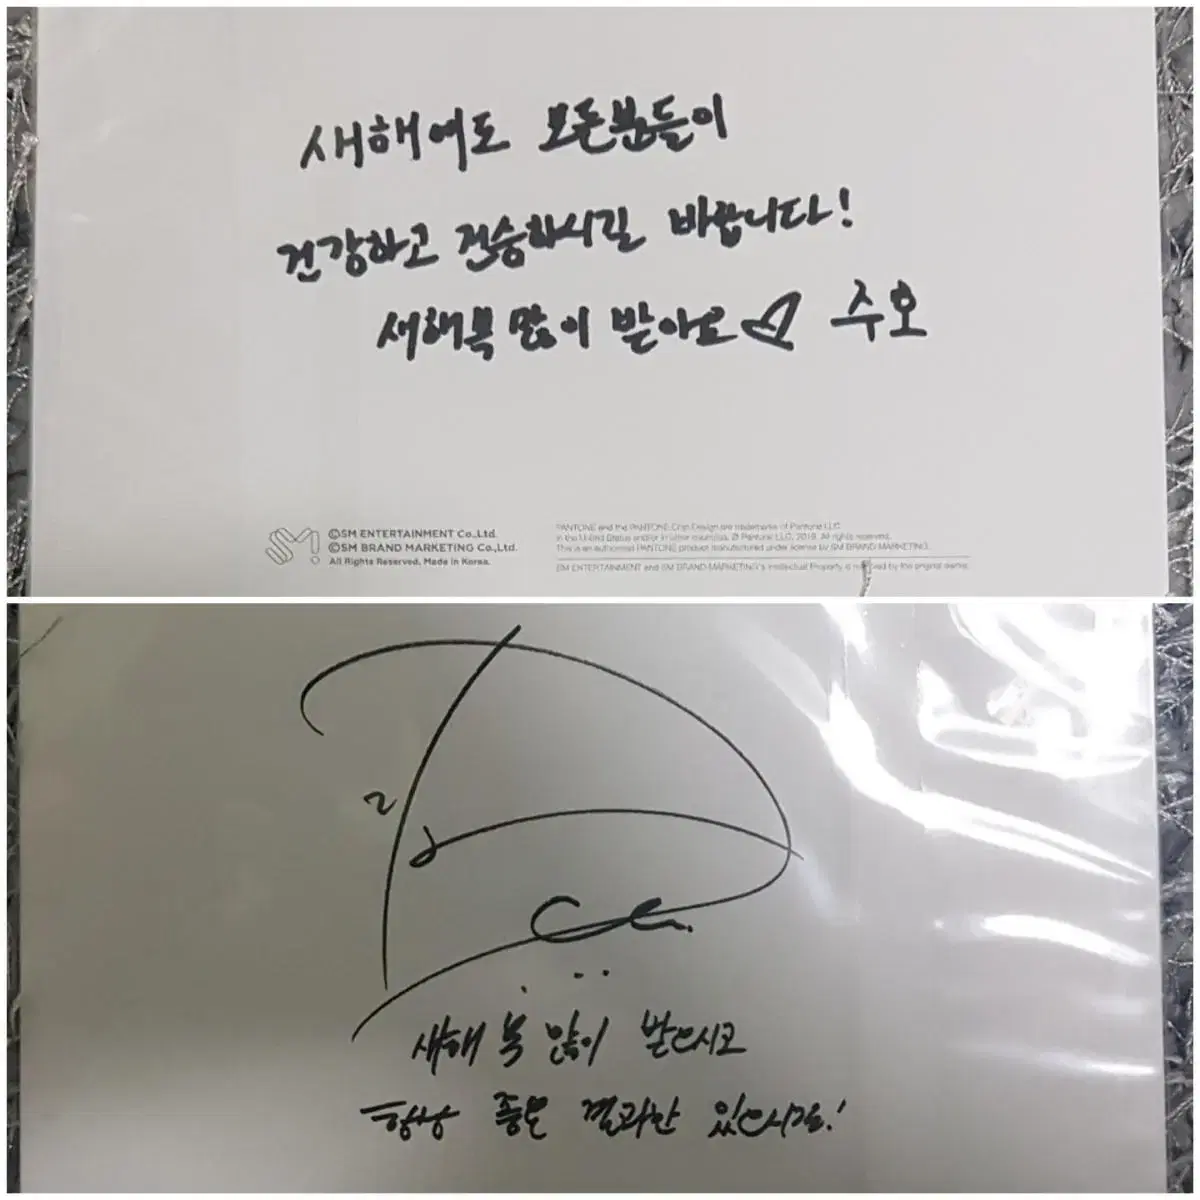 새해에도 모든분들이
건강하고 전승하시길 바랍니다!
새해복 많이 받아요♡ 수호
SM!
©SM ENTERTAINMENT Co.,Ltd.
©SM BRAND MARKETING Co.,Ltd.
All Rights Reserved. Made in Korea.
PANTONE and the PANTONE Chip Design are trademarks of Pantone LLC
in the United States and/or in other countries. © Pantone LLC, 2019. All rights reserved.
This is an authorised PANTONE product manufactured under license by SM BRAND MARKETING.
SM ENTERTAINMENT and SM BRAND MARKETING's Intellectual Property is by the original owner.
새해 복 많이 받으시고
항상 좋은 결과만 있으시길!